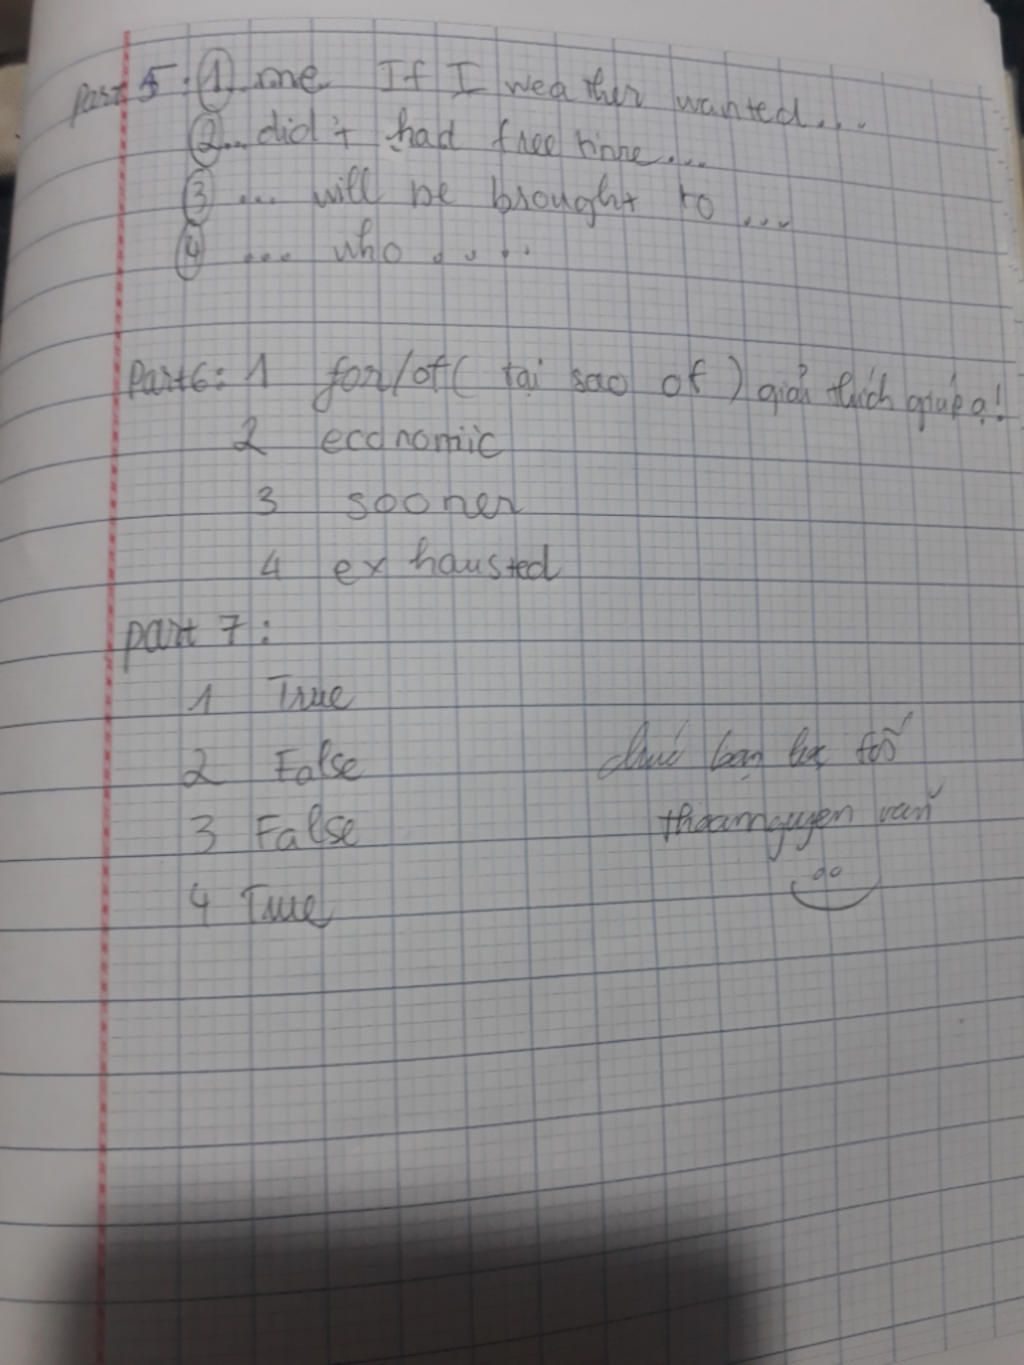 Part 5: 1 me If I weather wanted...
2... did't had free time...
3 ... will be brought to ...
4 ... who ....
Part 6: 1 for/of ( tại sao of ) giải thích giúp ạ!
2 ecdnomiic
3 sooner
4 exhausted
part 7:
1 True
2 False
3 False
4 True
chúc bạn học tốt